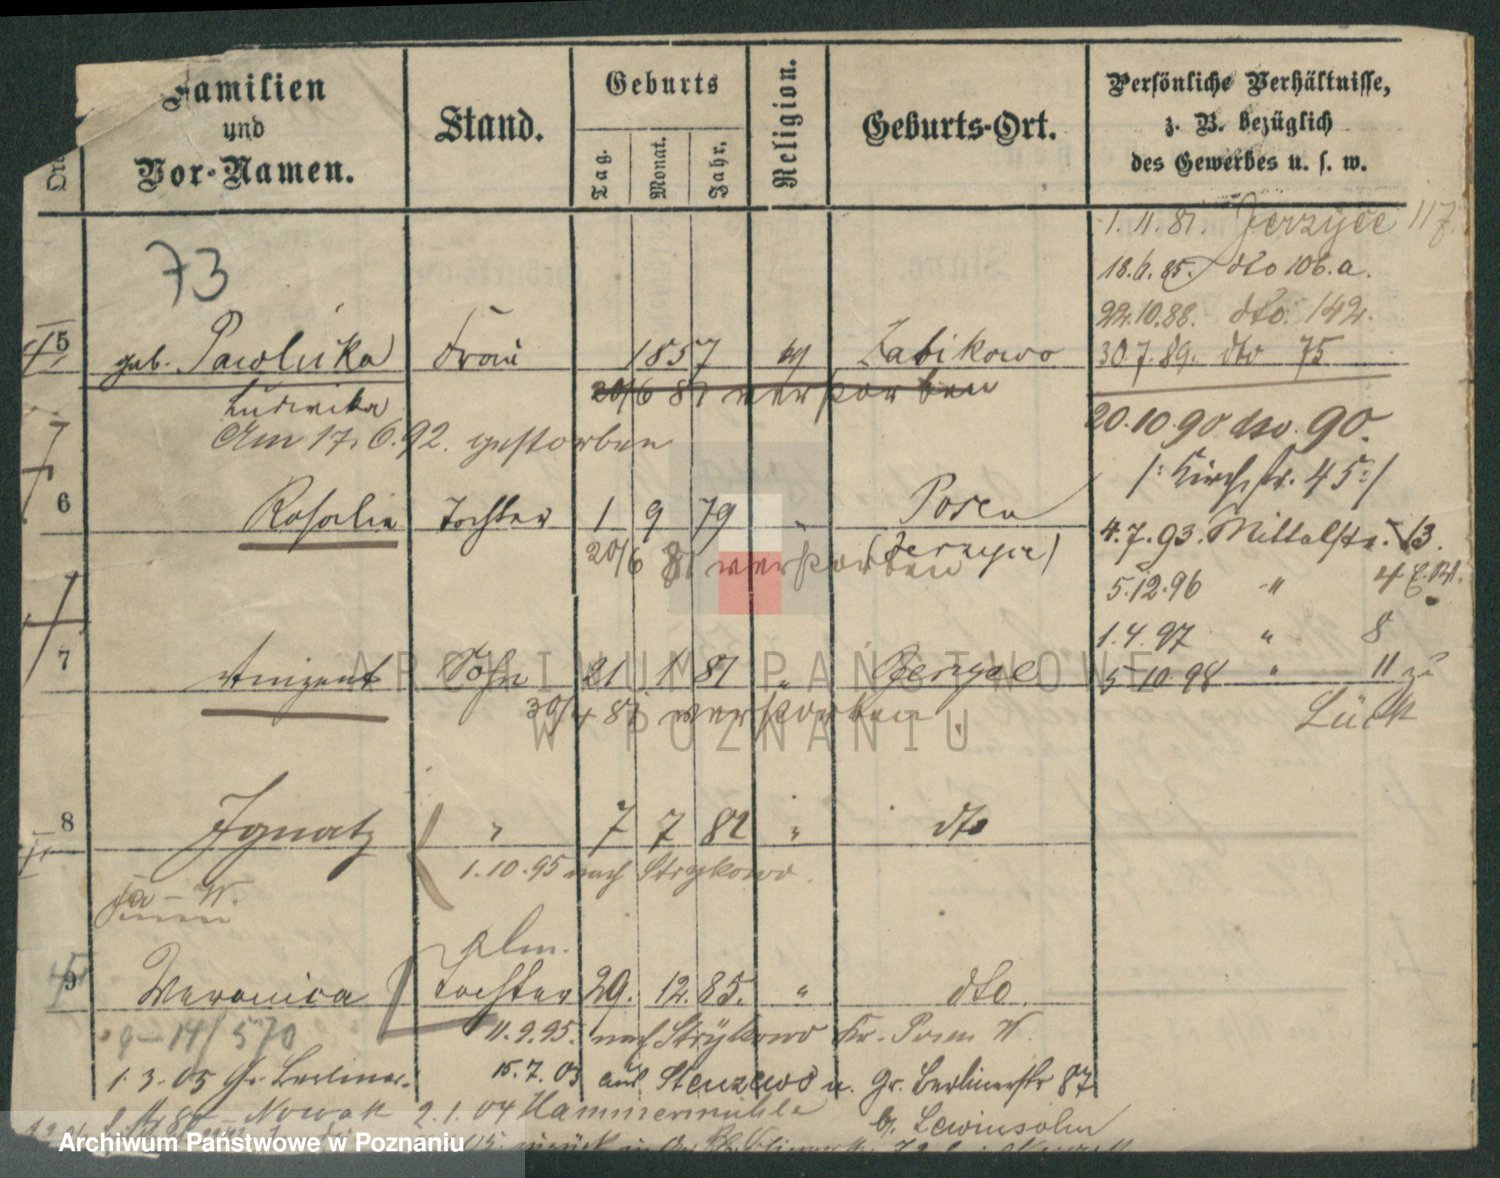 Familien
und
Vor-Namen.
Stand.
Geburts
Tag.
Monat.
Jahr.
Religion.
Geburts-Ort.
Persönliche Verhältnisse,
z. B. bezüglich
des Gewerbes u. s. w.
1.11.81. Jerzyce 117.
18.6.85. dto 106.a.
22.10.88. dto. 142.
30.7.89. dto 75
73
5 geb. Pawlicka Frau 1857 Zabikowo
Ludwika 20/6 81 verstorben
20.10.90 dto. 90.
Am 17.6.92. gestorben
/: Kirchstr. 45 :/
6 Rosalie Tochter 1 9 79 " Posen
(Jerzyce)
20/6 81 verstorben
4.7.93. Mittelstr. 13.
5.12.96 " 4
1.4.97 " 8
7 Sohn 21 1 81 " Jerzyce
5 10 98 " 11 zu
Lück
30/4 81 verstorben.
8 Ignatz " 7 7 82 " dto
1.10.95 nach Strykowo.
9 Veronica Tochter 29. 12. 85. " dto.
9-14/570
11.9.95. nach Strykowo Kr. Posen W.
1.3.05 Gr. Berliner.
15.7.03 aus Stenzewo u. Gr. Berlinerstr 87
Nowak 2.1.04 Hammermühle
b. Lewinsohn
ARCHIWUM PAŃSTWOWE
W POZNANIU
Archiwum Państwowe w Poznaniu